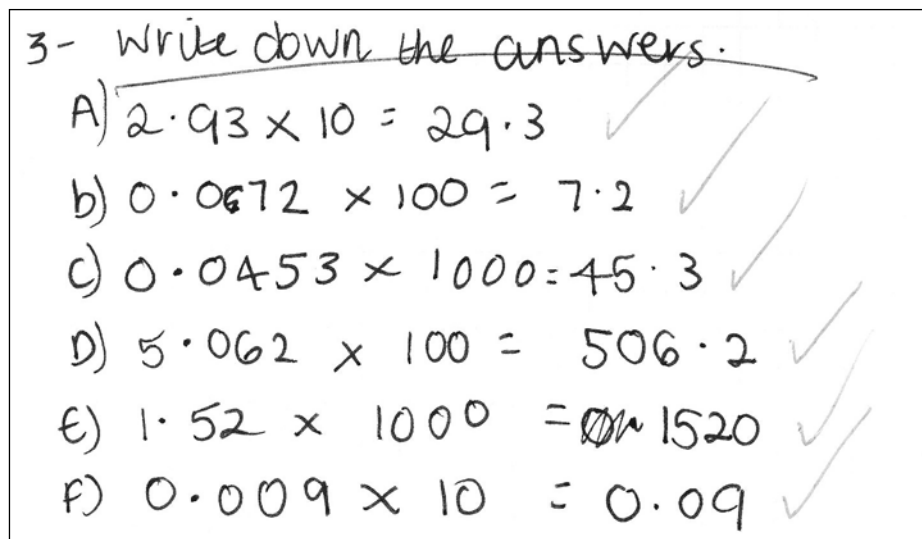 3- Write down the answers.
A) 2.93 × 10 = 29.3
b) 0.0672 × 100 = 7.2
C) 0.0453 × 1000 = 45.3
D) 5.062 × 100 = 506.2
E) 1.52 × 1000 = 1520
F) 0.009 × 10 = 0.09